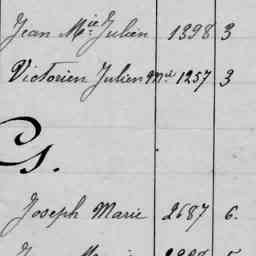 Jean Mie Julien 1398 3
Victorien Julien 1257 3
G.
Joseph Marie 2687 6.